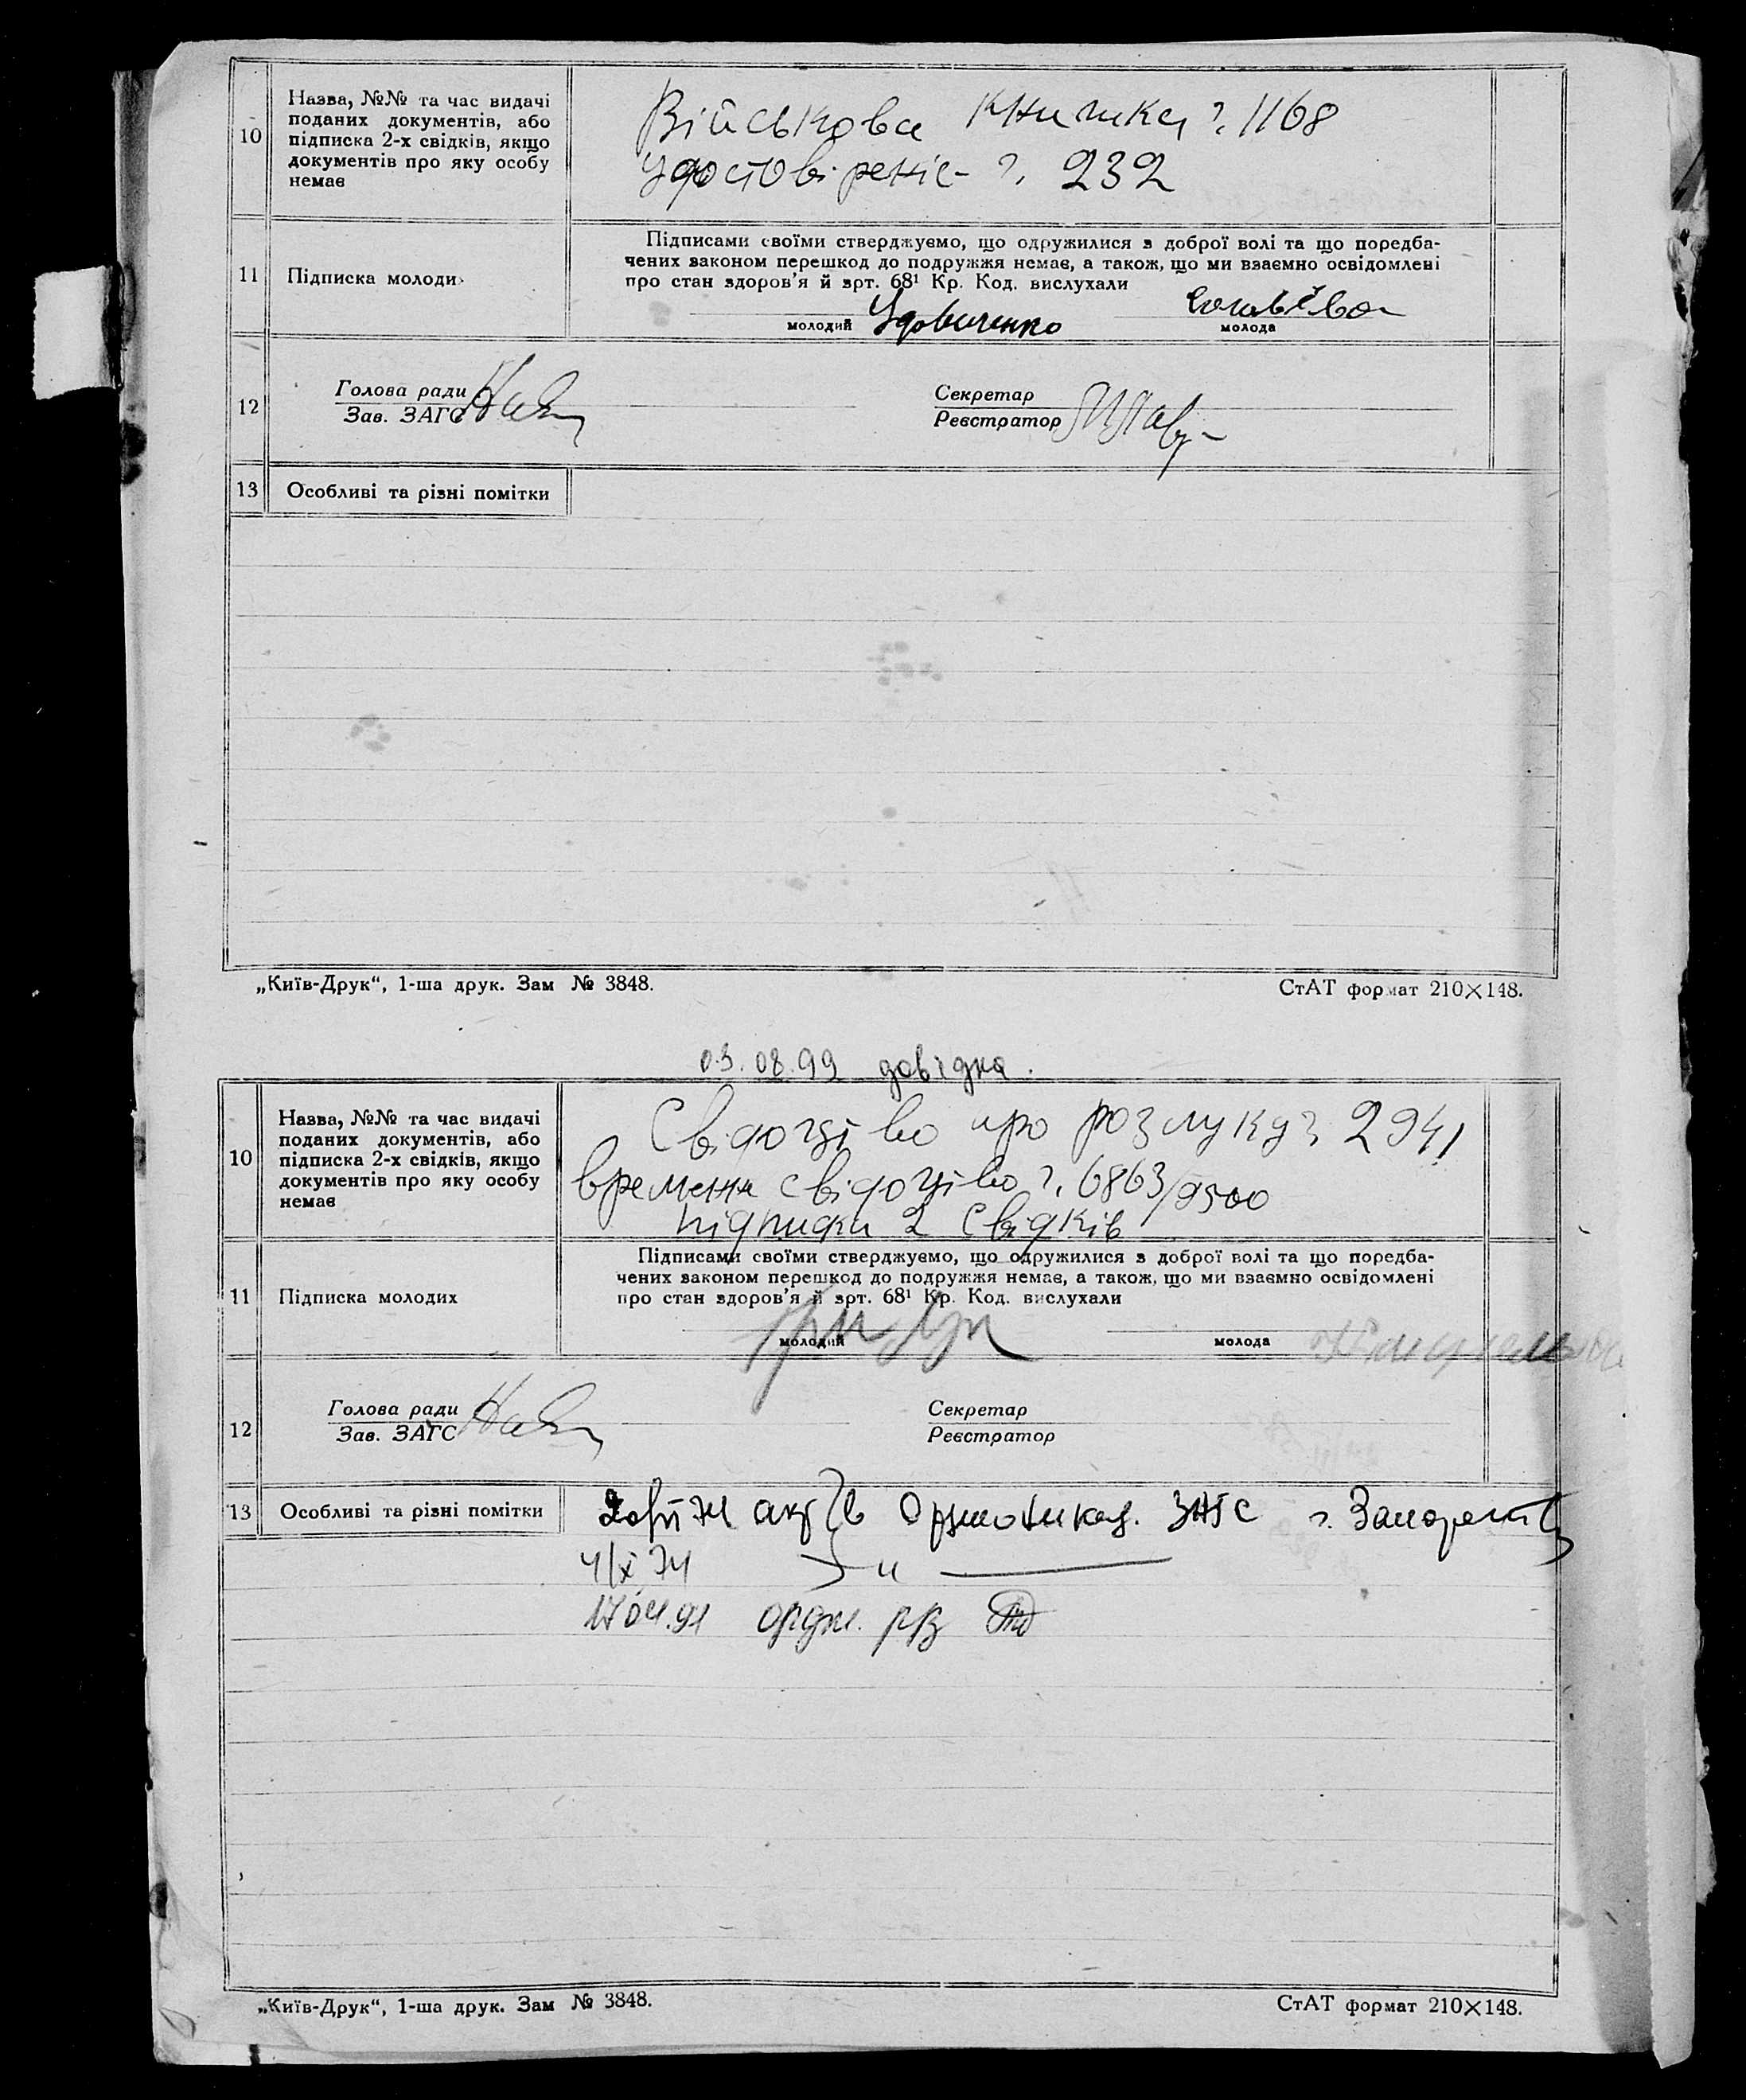 10
Назва, №№ та час видачі
поданих документів, або
підписка 2-х свідків, якщо
документів про яку особу
немає
Військова книжка ч. 1168
удостовіреніє ч. 232
11
Підписка молоди
Підписами своїми стверджуємо, що одружилися з доброї волі та що передба-
чених законом перешкод до подружжя немає, а також, що ми взаємно освідомлені
про стан здоров'я й арт. 68¹ Кр. Код. вислухали
молодий Удовиченко
молода
12
Голова ради
Зав. ЗАГС
Секретар
Реєстратор
13
Особливі та різні помітки
„Київ-Друк“, 1-ша друк. Зам № 3848.
СтАТ формат 210×148.
03.08.99 довідка.
10
Назва, №№ та час видачі
поданих документів, або
підписка 2-х свідків, якщо
документів про яку особу
немає
Свідоцтво про розлуку ч. 2941
времене свідоцтво ч. 6863/9500
підписки 2 свідків
11
Підписка молодих
Підписами своїми стверджуємо, що одружилися з доброї волі та що передба-
чених законом перешкод до подружжя немає, а також, що ми взаємно освідомлені
про стан здоров'я й арт. 68¹ Кр. Код. вислухали
молодий
молода
12
Голова ради
Зав. ЗАГС
Секретар
Реєстратор
13
Особливі та різні помітки
акт в ЗАГС г.
4/X 74 — " —
17.04.91 ордж.
„Київ-Друк“, 1-ша друк. Зам № 3848.
СтАТ формат 210×148.